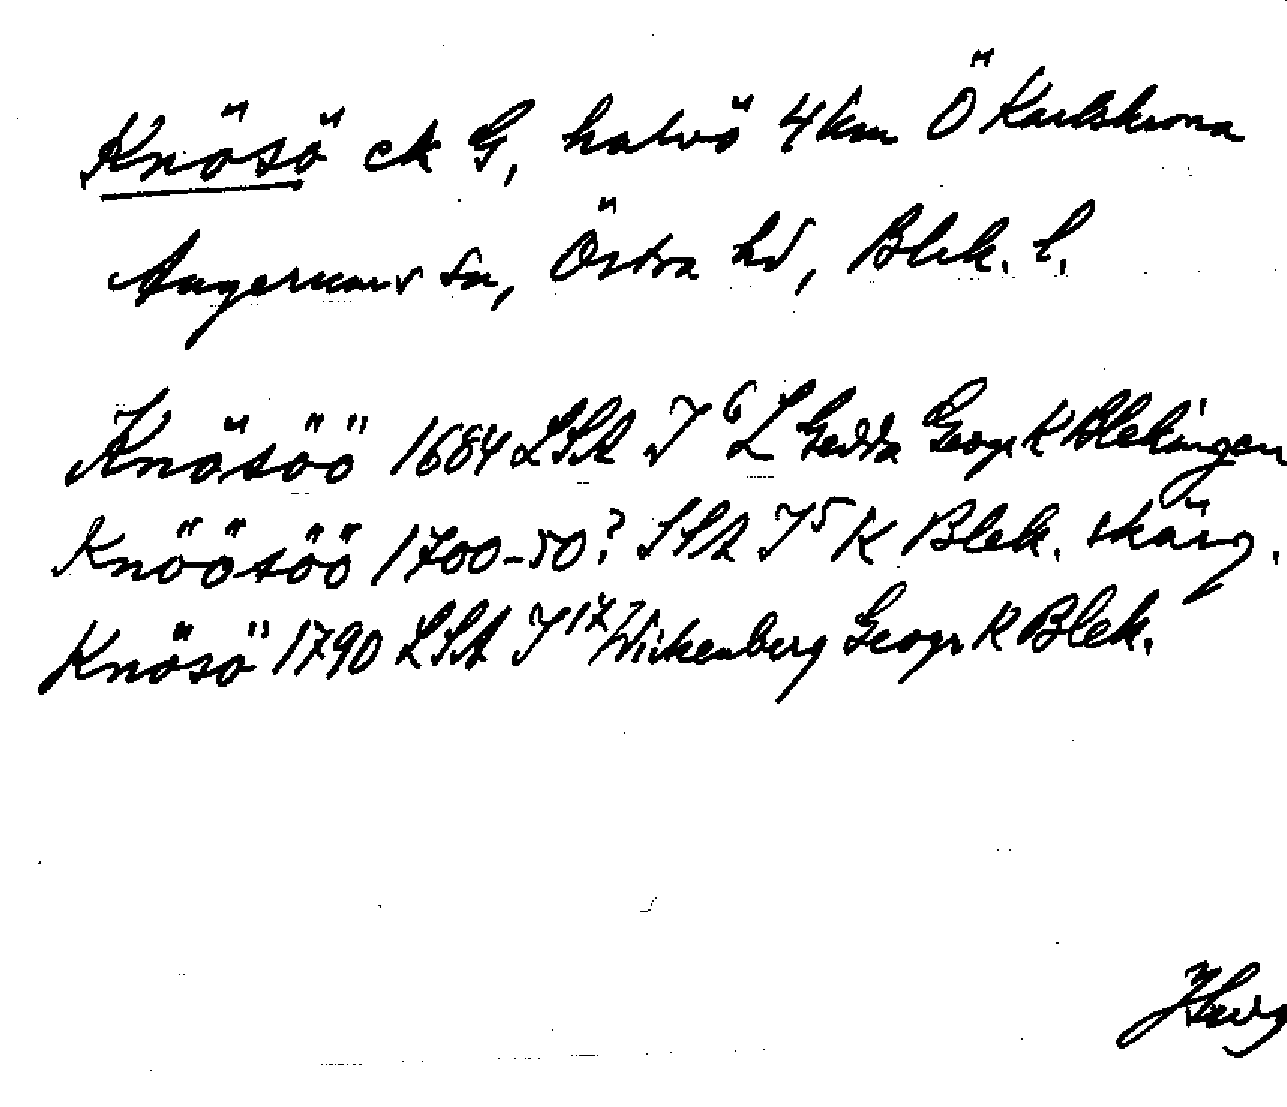 Knösö ek G, halvö 4 km Ö Karlskrona
Augerums sn, Östra hd, Blek. l.
Knösöö 1684 LSA I 6 L Gedda Geogr K Blekingen
Knöösöö 1700-50? LSA I 5 K Blek. skärg.
Knösö 1790 LSA I 17 Wickenberg Geogr K Blek.